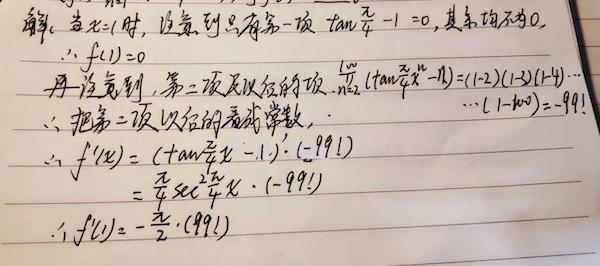 解: 当x=1时, 注意到只有第一项 tan π/4 - 1 = 0, 其余均不为0,
∴ f(1)=0
再注意到, 第二项及以后的项 ∏_{n=2}^{100} (tan π/4 xⁿ - n) = (1-2)(1-3)(1-4)⋯
⋯(1-100) = -99!
∴ 把第二项以后的看成常数,
∴ f'(x) = (tan π/4 x - 1)'·(-99!)
= π/4 sec² π/4 x · (-99!)
∴ f'(1) = -π/2·(99!)